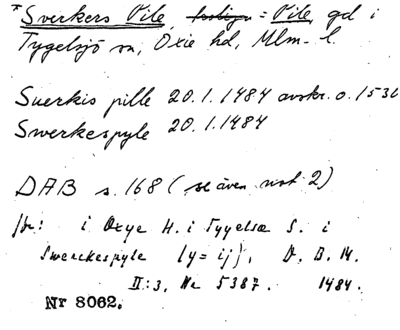 *Sverkers Pile, = Pile, gd i
Tygelsjö sn, Oxie hd, Mlm. l.
Suerkis pille 20.1.1484 avskr. o. 1530
Swerkespyle 20.1.1484
DAB s. 168 (se även not 2)
i Oxye H. i Tygelse S. i
Swerckespyle (y = ij), D. B. 14.
II:3, Nr 5387. 1484.
Nr 8062.